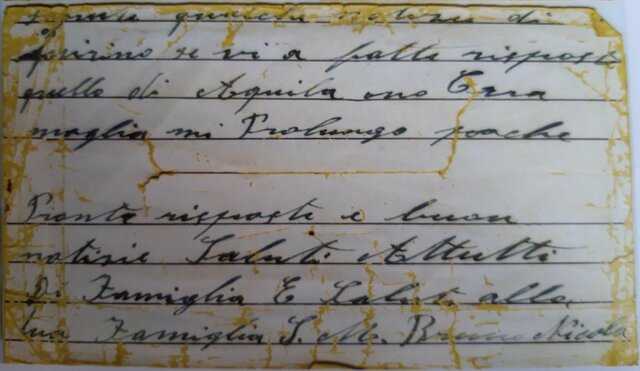 qualche notizia di
Quirino se vi a fatto risposta
quello di Aquila ono Cara
moglia mi Prolungo poache
Pronta risposta e buon
notizie Saluti Attutti
Di Famiglia E Saluti alla
tua Famiglia S. M. Bruno Nicola